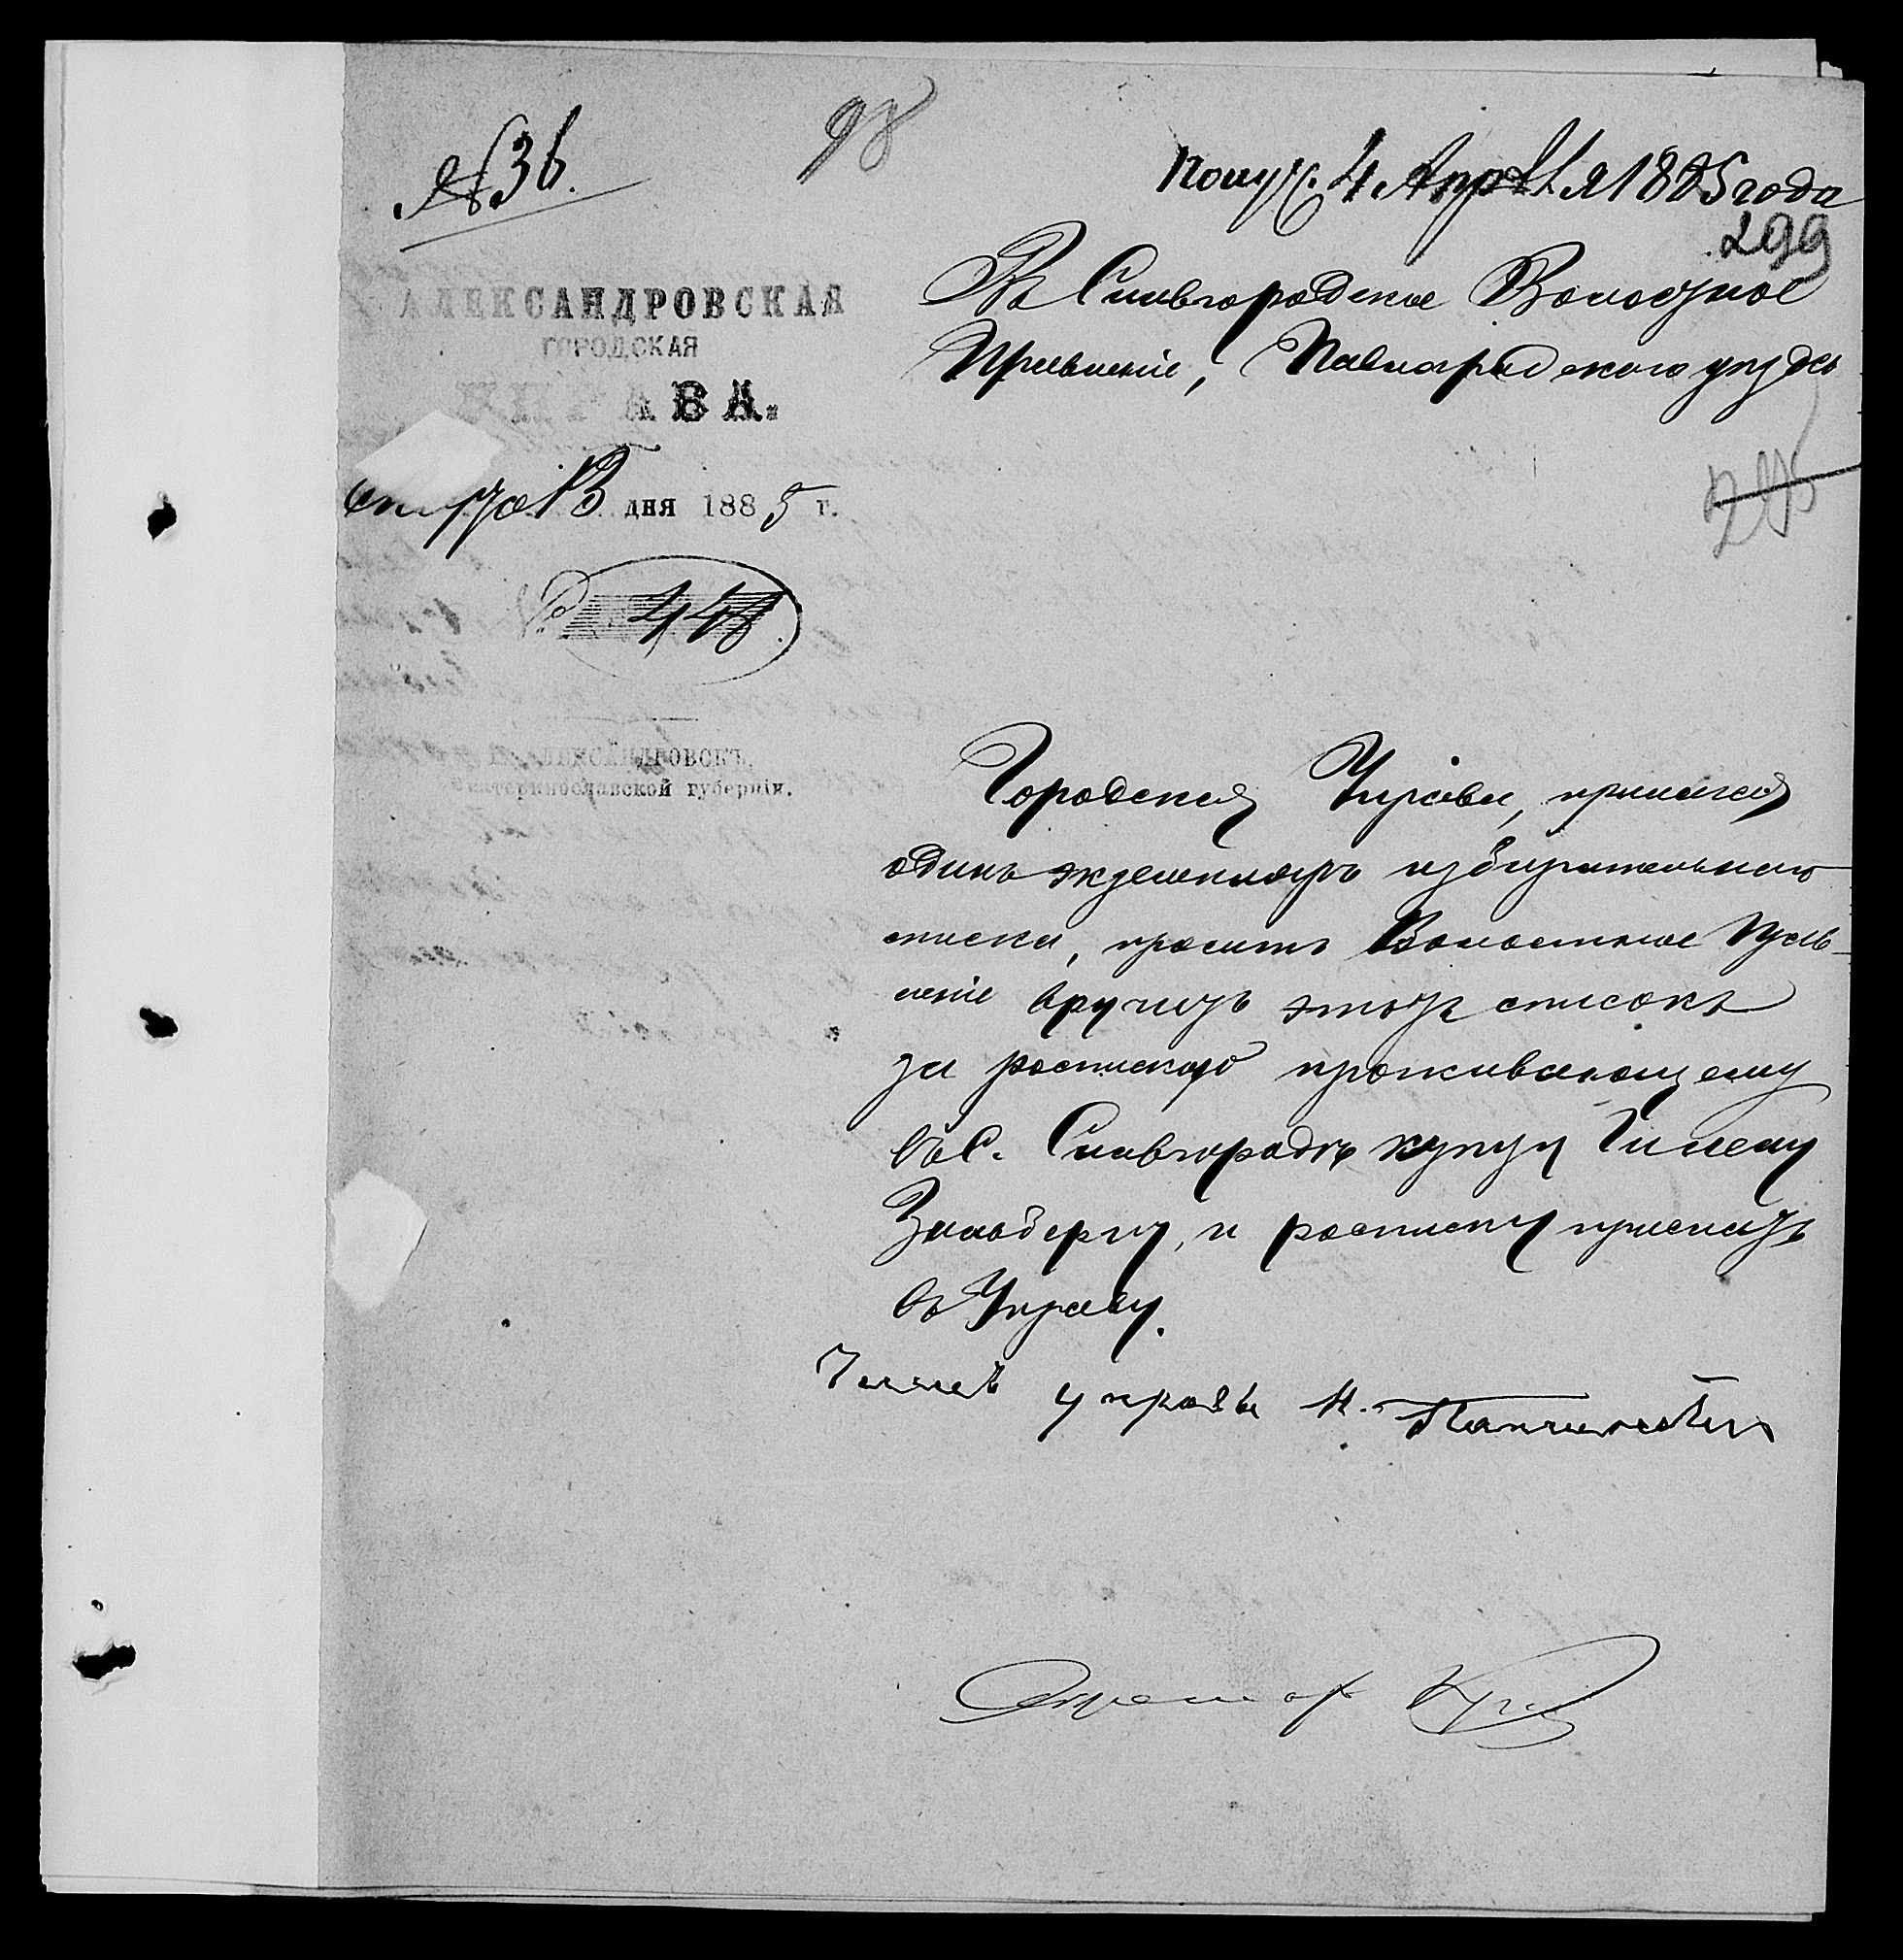 № 36.
98
Получ. 4 Апрѣля 1885 года
299
Въ Славгородское Волостное
Правленіе, Павлоградского уѣзда
АЛЕКСАНДРОВСКАЯ
ГОРОДСКАЯ
УПРАВА.
Марта 13 дня 1885 г.
295
№ 448.
Г. АЛЕКСАНДРОВСКЪ,
Екатеринославской губерніи.
Городская Управа, прилагая
одинъ экземпляръ избирательнаго
списка, проситъ Волостное Прав-
леніе вручить этотъ списокъ
за роспискою проживающему
въ с. Славгородѣ купцу
Зильбергу, и росписку прислать
въ Управу.
Членъ управы М.
Секретарь